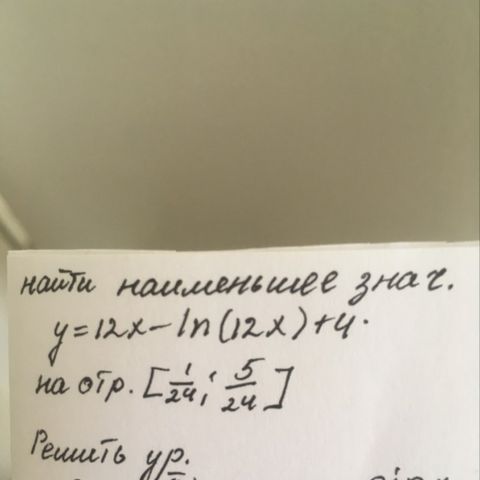 найти наименьшее знач.
y=12x-ln(12x)+4.
на отр. [1/24; 5/24]
Решить ур.